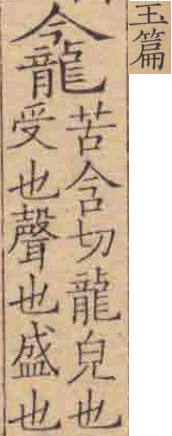 玉篇
龕
苦含切龍皃也
受也聲也盛也